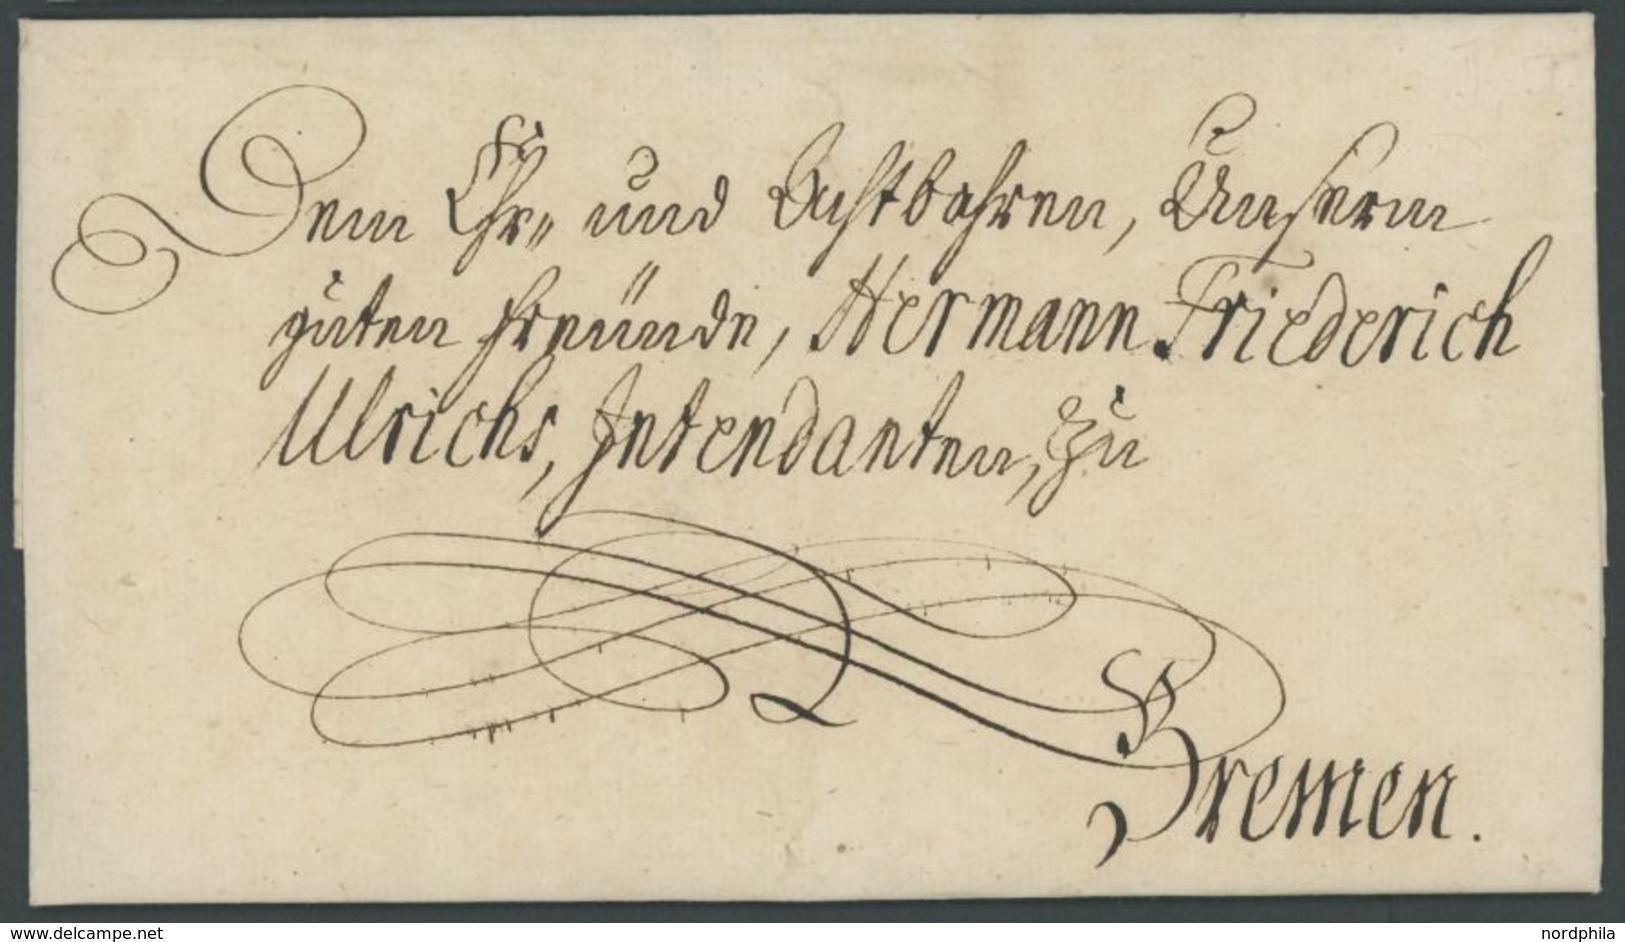 Dem Ehr- und Achtbahren, Unserm
guten Freunde, Hermann Friederich
Ulrichs, Intendanten, zu
Bremen.
www.delcampe.net
nordphila